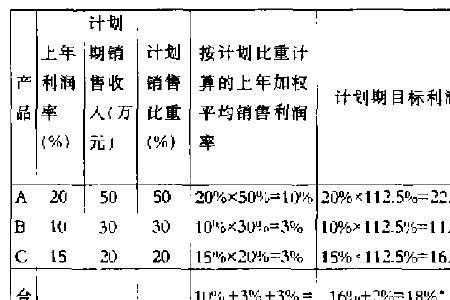 产品
上年利润率(%)
计划期销售收入(万元)
计划销售比重(%)
按计划比重计算的上年加权平均销售利润率
计划期目标利
A 20 50 50 20%×50%=10% 20%×112.5%=22.
B 10 30 30 10%×30%=3% 10%×112.5%=11.
C 15 20 20 15%×20%=3% 15%×112.5%=16.
合 10%+3%+3%= 16%+2%=18%*